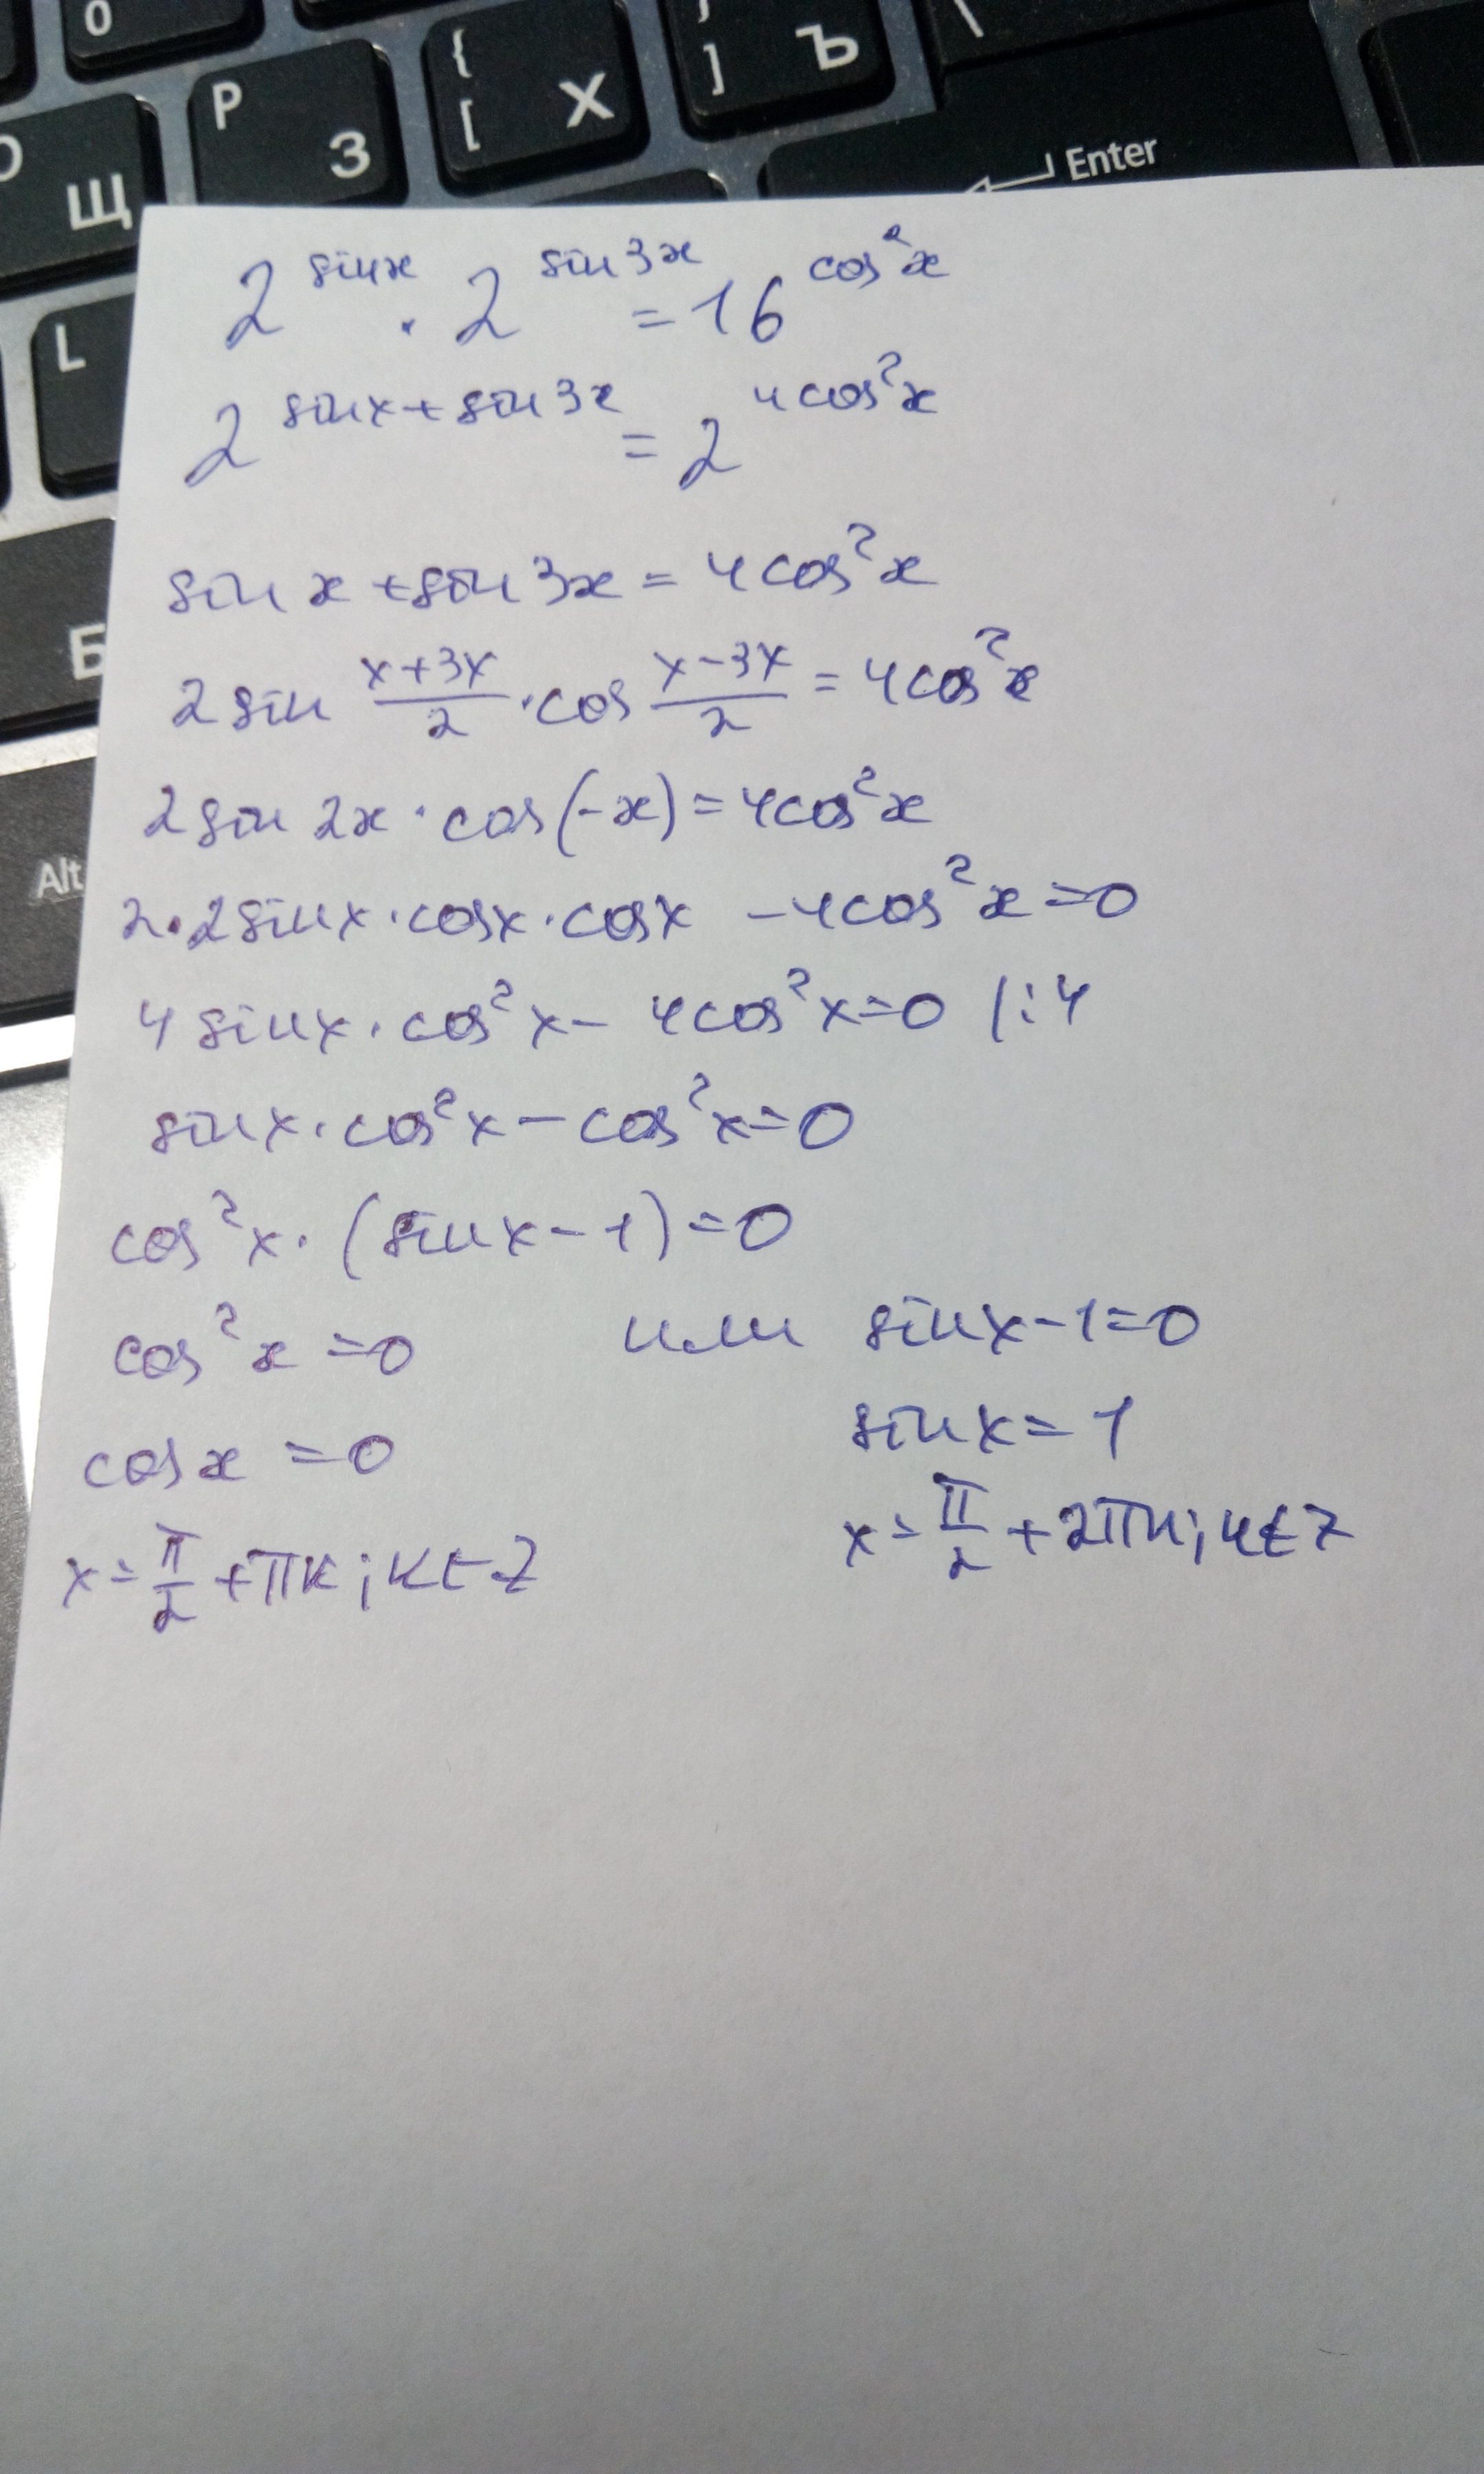 0
P З
{ [ Х
} ] Ъ
\
Щ
Enter
L
Б
Alt
2^(sin x) · 2^(sin 3x) = 16^(cos²x)
2^(sin x + sin 3x) = 2^(4cos²x)
sin x + sin 3x = 4cos²x
2 sin (x+3x)/2 · cos (x-3x)/2 = 4cos²x
2 sin 2x · cos(-x) = 4cos²x
2 · 2 sin x · cos x · cos x - 4cos²x = 0
4 sin x · cos²x - 4cos²x = 0 |:4
sin x · cos²x - cos²x = 0
cos²x · (sin x - 1) = 0
cos²x = 0 или sin x - 1 = 0
cos x = 0 sin x = 1
x = π/2 + πk; k ∈ Z x = π/2 + 2πn; n ∈ Z